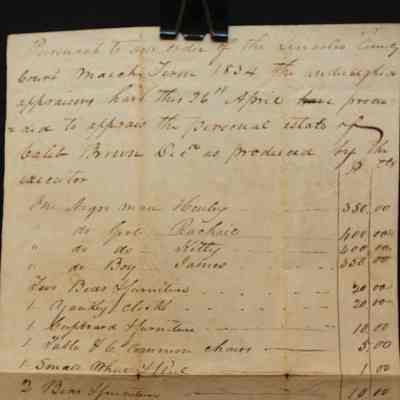 Pursuant to an order of the Lincoln County
Court March Term 1834 the undersigned
appraisers have this 26th April have procee
=ded to appraise the personal estate of
Caleb Brown Decd as produced by the
executor
$ cts
One Negro man Henley 350.00
" do Girl Rachael 400.00
" do do Kitty 400.00
" do Boy James 350.00
Two Beds & furniture 20.00
1 Yankey clock 20.00
1 Cupboard & furniture 10.00
1 Table & 6 common chairs 5.00
1 Small 1.00
2 Beds & furniture 10.00